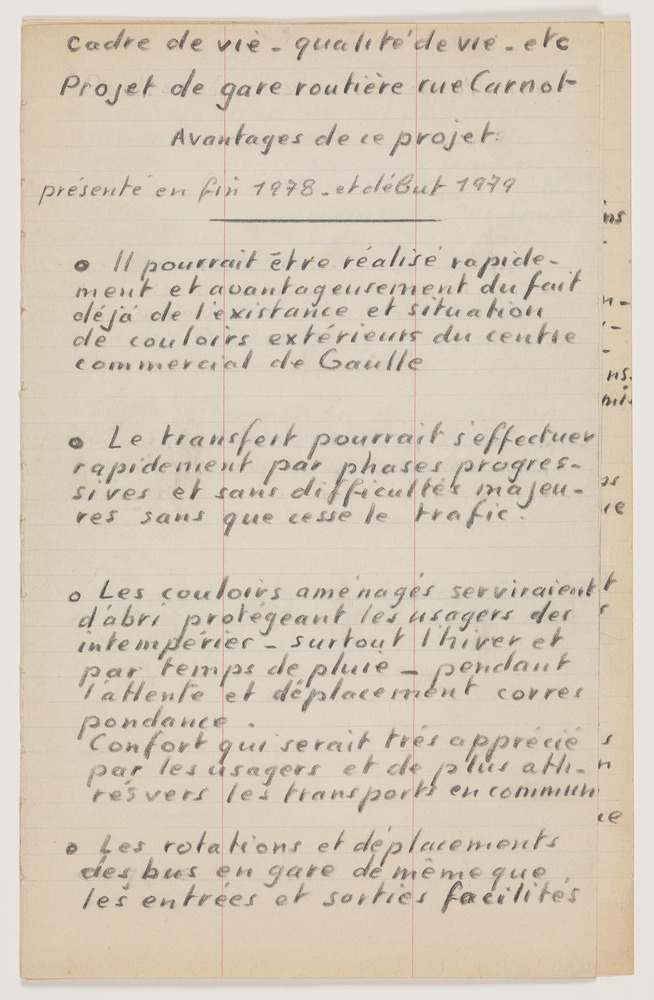 Cadre de vie - qualité de vie - etc
Projet de gare routière rue Carnot
Avantages de ce projet
présenté en fin 1978 - et début 1979
o Il pourrait être réalisé rapide-
ment et avantageusement du fait
déjà de l'existance et situation
de couloirs extérieurs du centre
commercial de Gaulle
o Le transfert pourrait s'effectuer
rapidement par phases progres-
sives et sans difficultés majeu-
res sans que cesse le trafic.
o Les couloirs aménagés serviraient
d'abri protégeant les usagers des
intempéries - surtout l'hiver et
par temps de pluie - pendant
l'attente et déplacement corres
pondance.
Confort qui serait très apprécié
par les usagers et de plus atti-
rés vers les transports en commun
o Les rotations et déplacements
des bus en gare de même que
les entrées et sorties facilités